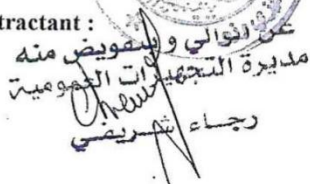 tractant :
عن الوالي و بتفويض منه
مديرة التجهيزات العمومية
رجاء شريفي